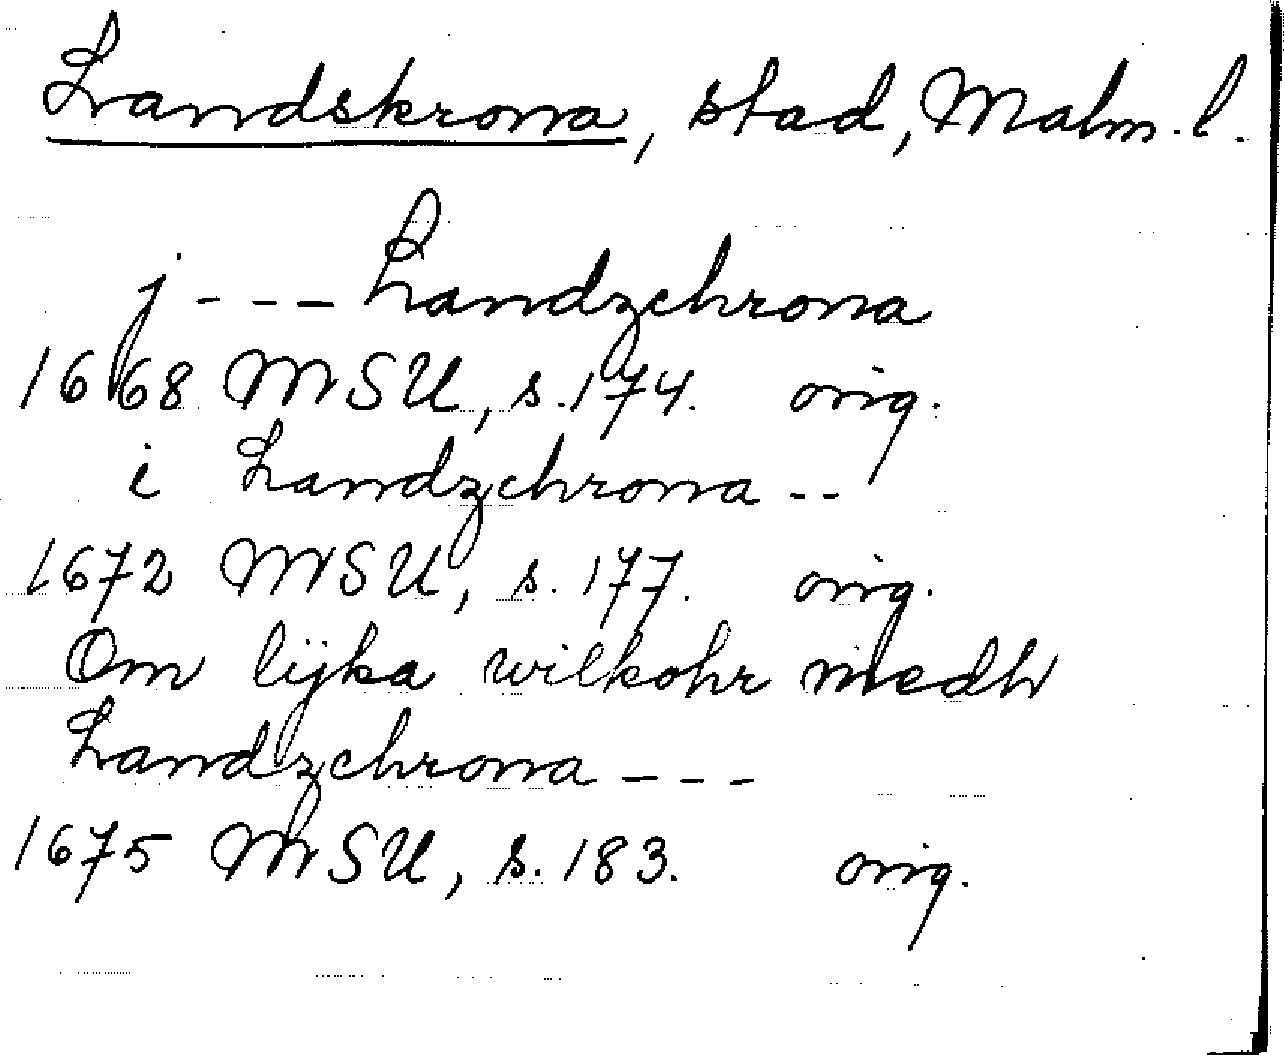 Landskrona, stad, Malm. l.
j --- Landzchrona
1668 MSU, s. 174. orig.
i Landzchrona --
1672 MSU, s. 177. orig.
Om lijka wilkohr medh
Landzchrona ---
1675 MSU, s. 183. orig.